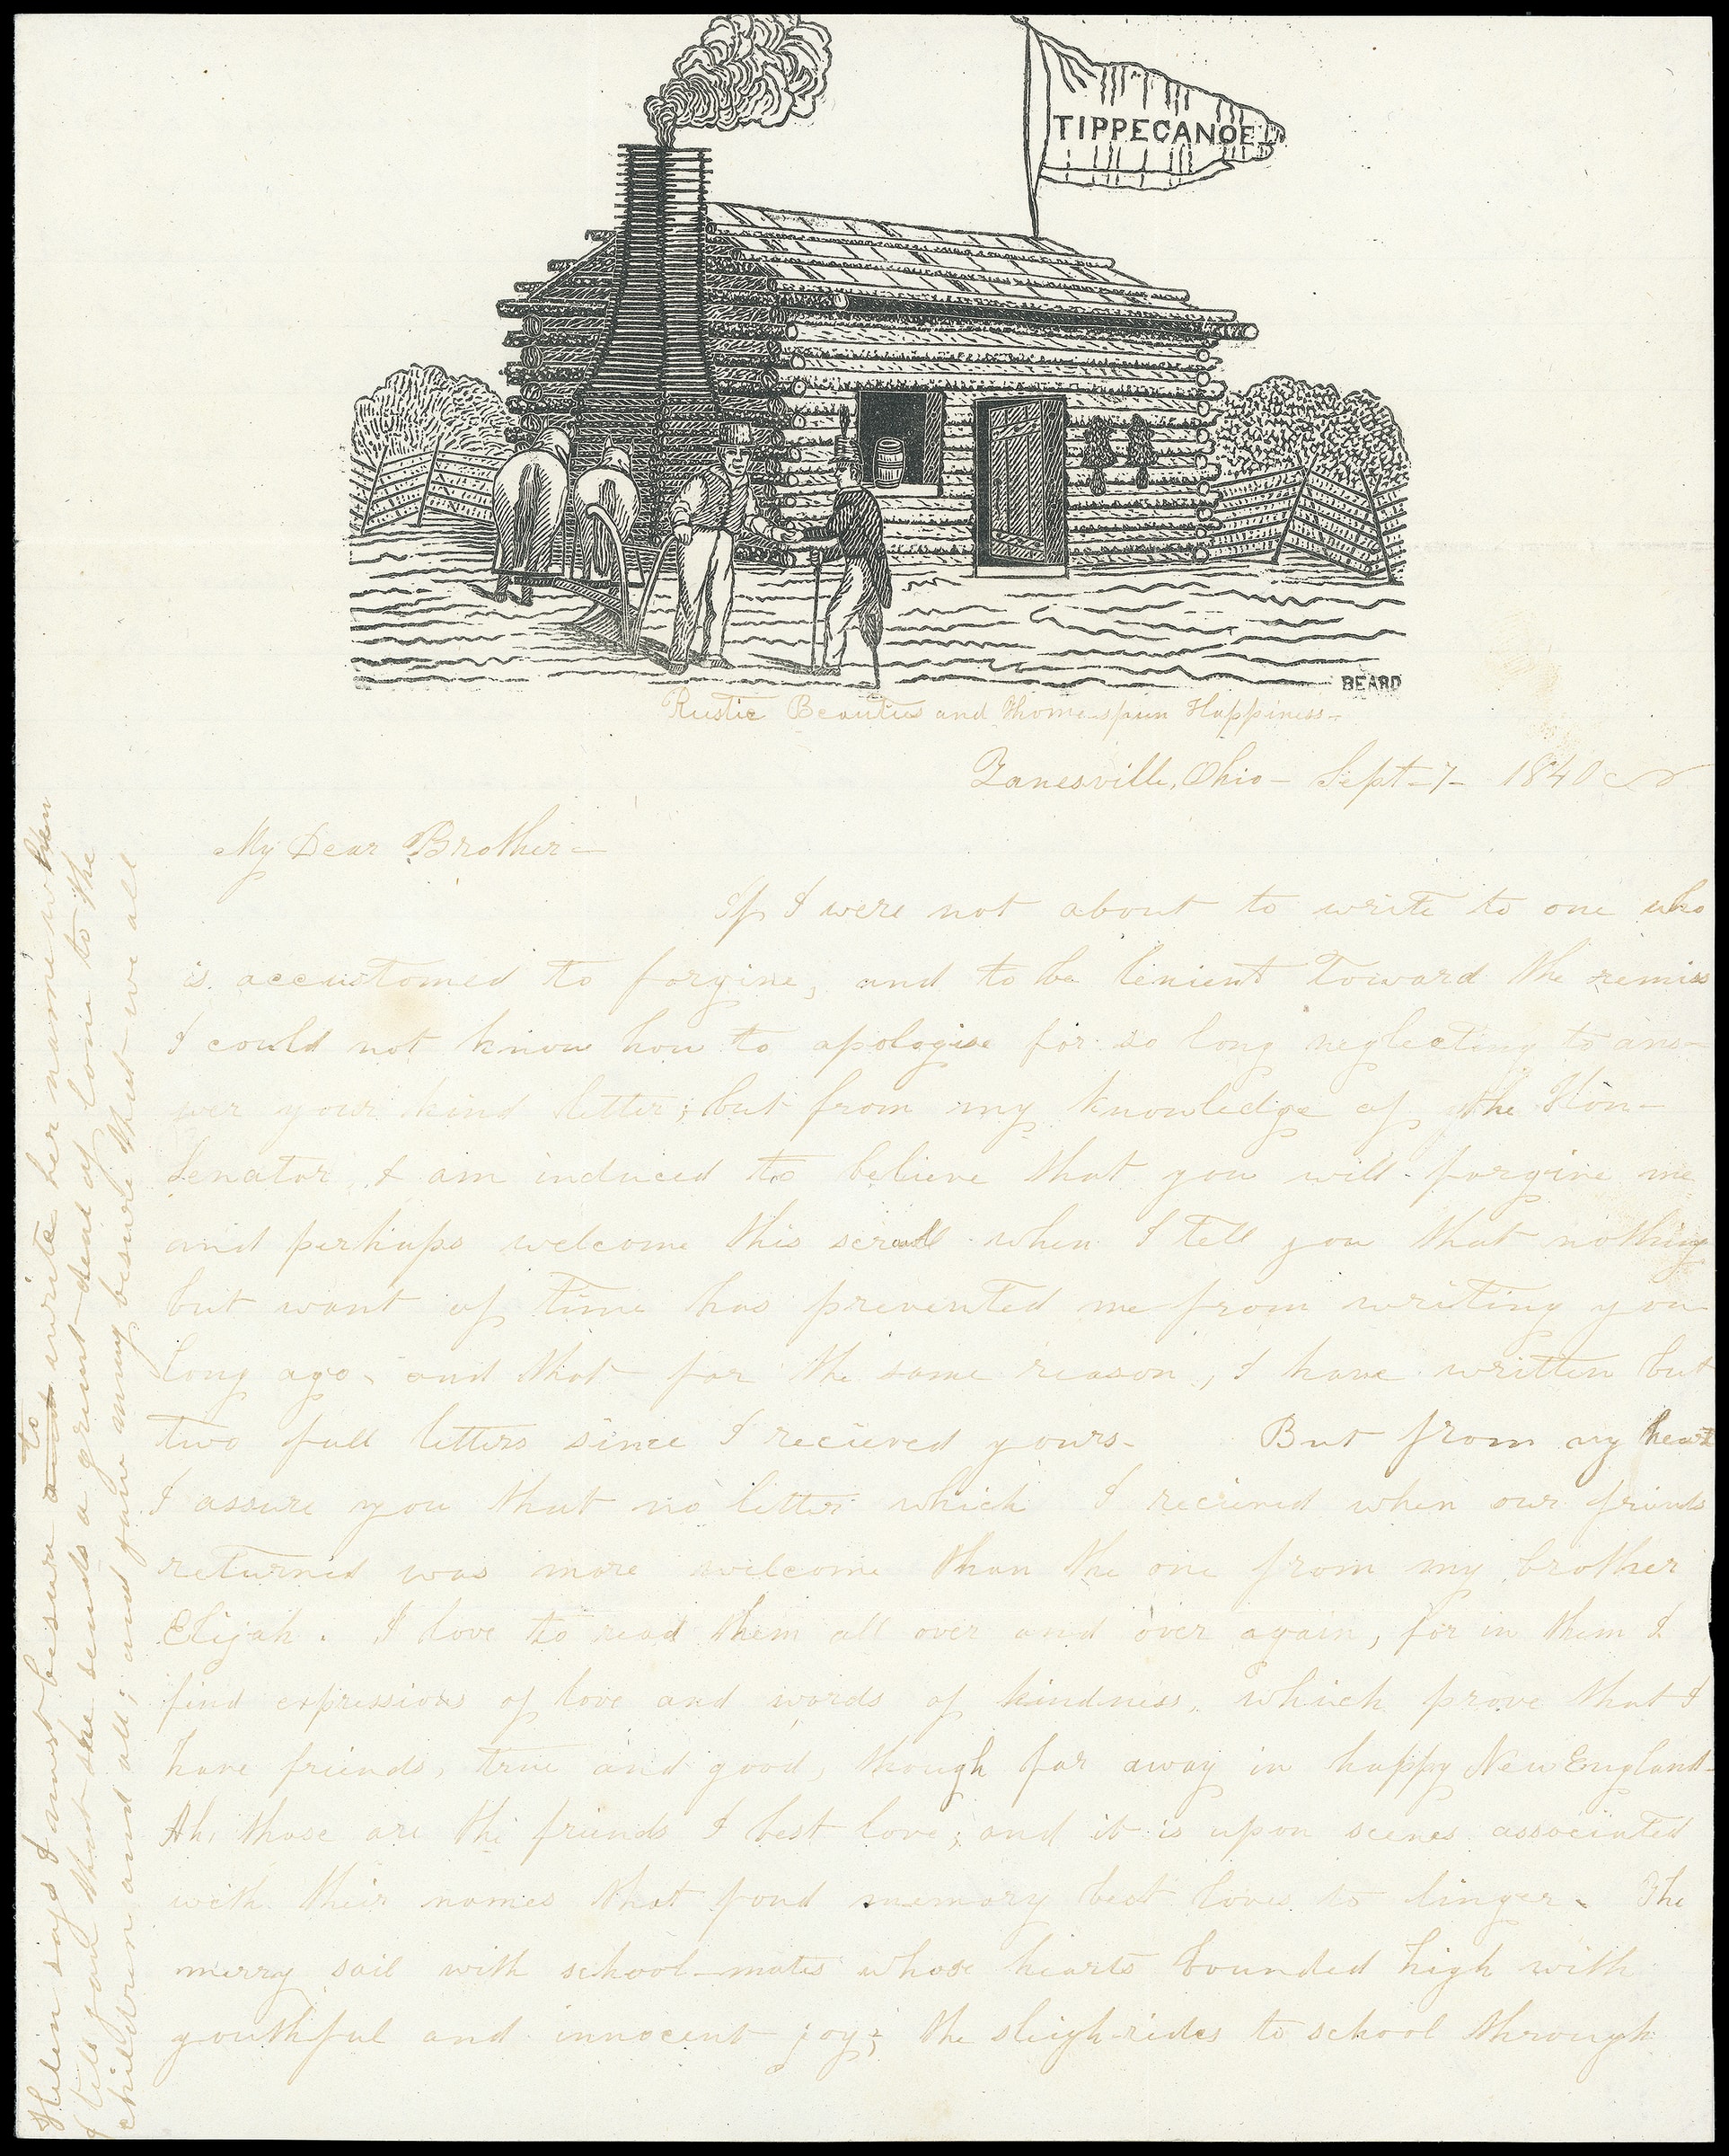 TIPPECANOE
BEARD
Rustic Beauties and Home-spun Happiness-
Zanesville, Ohio- Sept-7- 1840
My Dear Brother-
If I were not about to write to one who
is accustomed to forgive, and to be lenient toward the remiss
I could not know how to apologise for so long neglecting to ans-
wer your kind letter; but from my knowledge of the Hon-
Senator, I am induced to believe that you will forgive me
and perhaps welcome this scrawl when I tell you that nothing
but want of time has prevented me from writing you
long ago, and that for the same reason, I have written but
two full letters since I recieved yours- But from my heart
I assure you that no letter which I recieved when our friends
returned was more welcome than the one from my brother
Elijah. I love to read them all over and over again, for in them I
find expressions of love and words of kindness, which prove that I
have friends, true and good, though far away in happy New England-
Ah, those are the friends I best love; and it is upon scenes associated
with their names that fond memory best loves to linger- The
merry sail with school-mates whose hearts bounded high with
youthful and innocent joy; the sleigh-rides to school through
Helen says I must besure and to write her name when
I tell you that she sends a great deal of love to the
children and all; and you may besure that we all